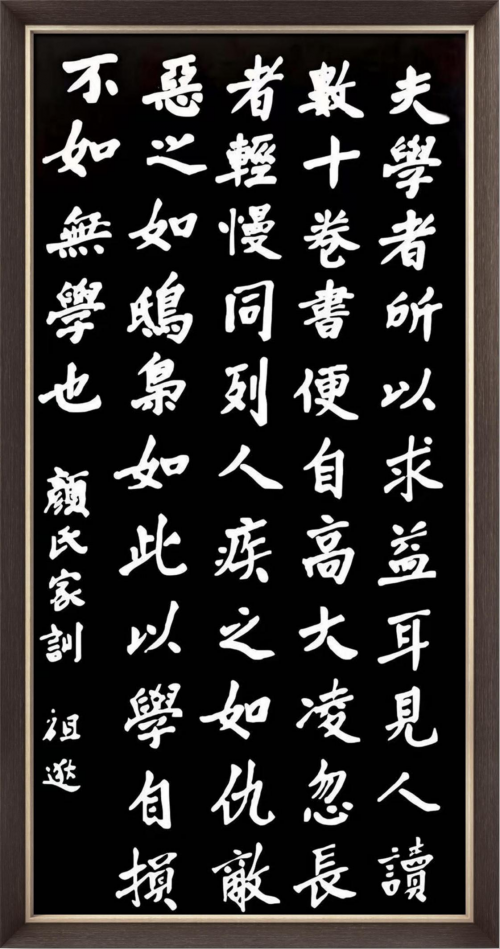 夫學者所以求益耳見人讀
數十卷書便自高大凌忽長
者輕慢同列人疾之如仇敵
惡之如鴟梟如此以學自損
不如無學也
顏氏家訓 祖逖